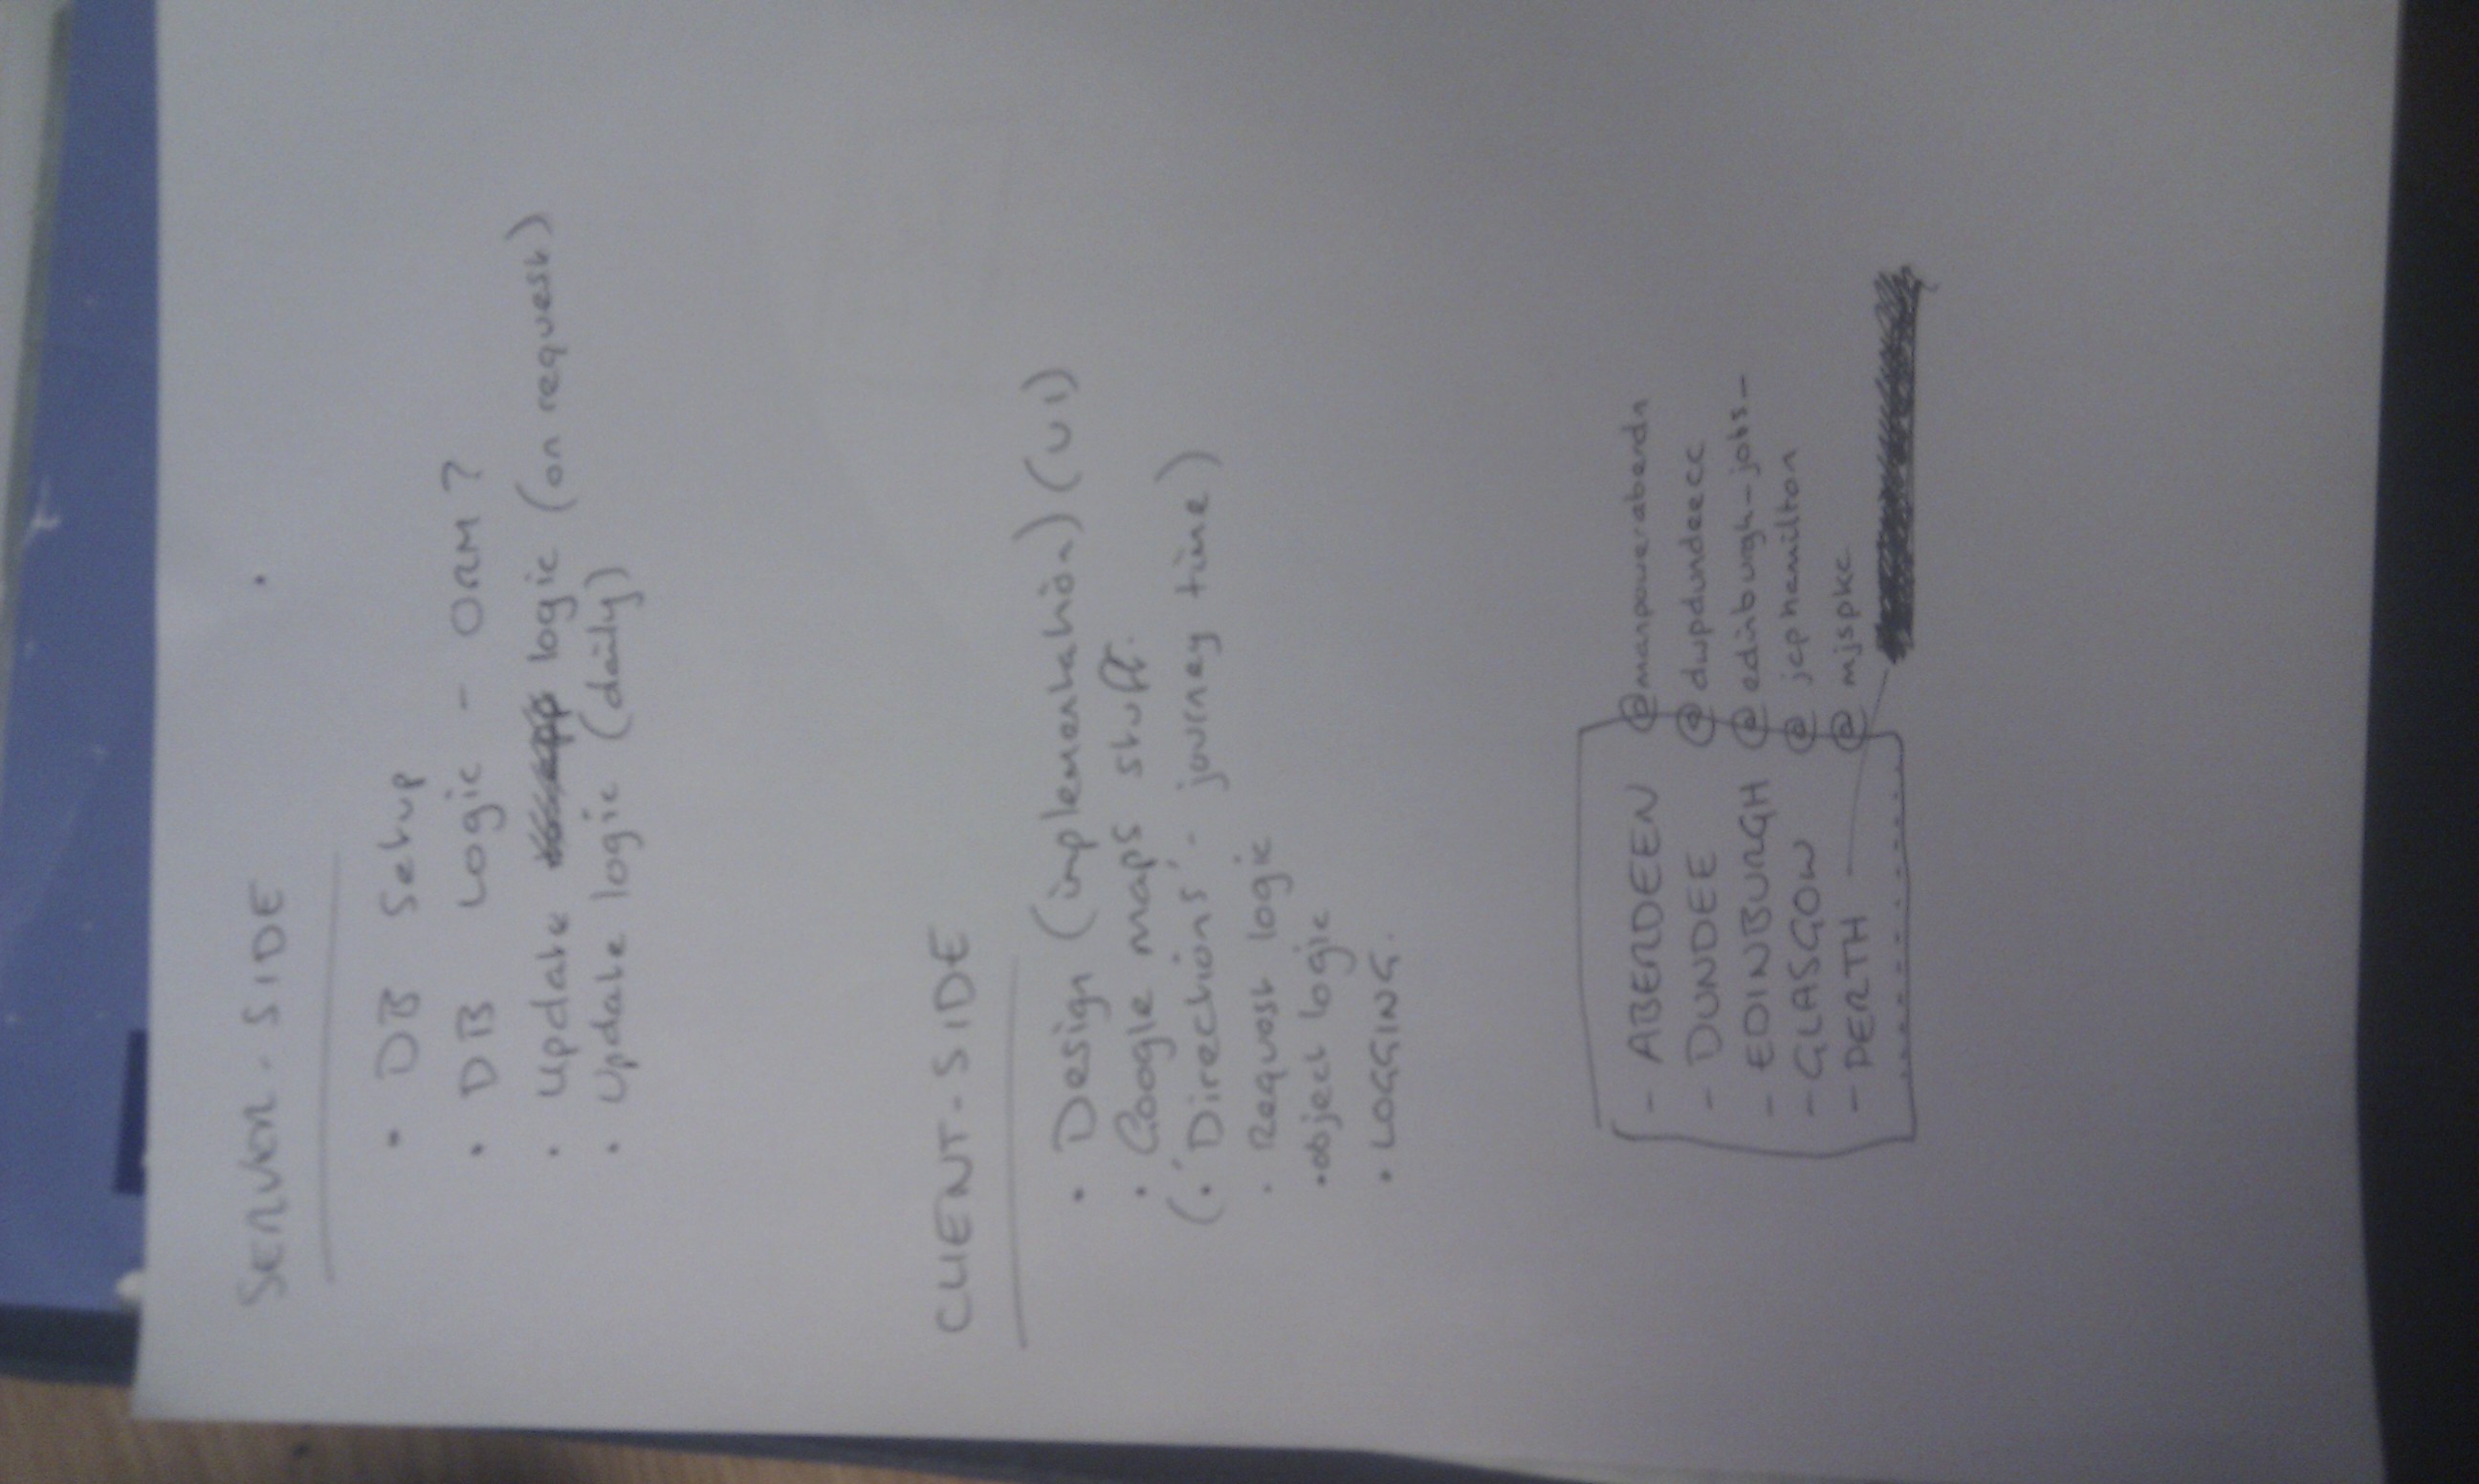 SERVER-SIDE
• DB Setup
• DB Logic - ORM?
• Update logic (on request)
• Update logic (daily)
CLIENT-SIDE
• Design (implementation) (UI)
• Google maps stuff.
(• 'Directions' - journey time)
• Request logic
• object logic
• LOGGING.
- ABERDEEN @manpoweraberdn
- DUNDEE @dwpdundeecc
- EDINBURGH @edinburgh-jobs-
- GLASGOW @jcphamilton
- PERTH @mjspkc